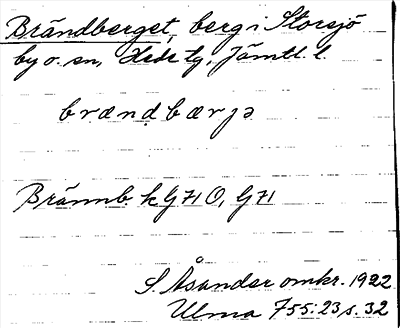 Brändberget, berg i Storsjö
by o. sn, Hede tg, Jämtl. l.
brændbærjə
Brännb. k G 71 O, G 71
S. Åsander omkr. 1922
Ulma 755:23 s. 32